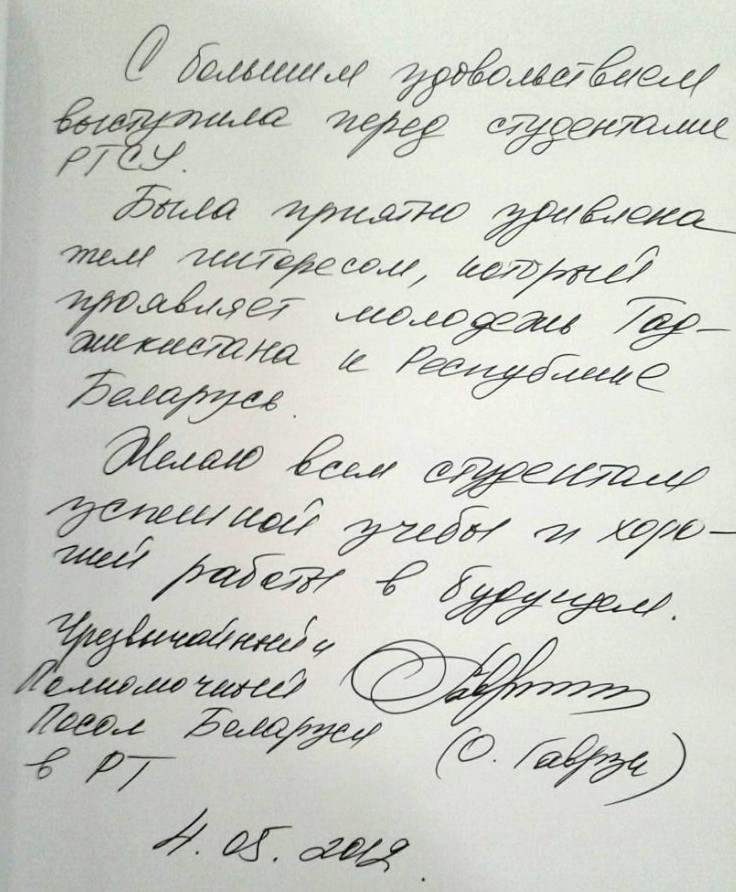 С большим удовольствием
выступила перед студентами
РТСУ.
Была приятно удивлена
тем интересом, который
проявляет молодежь Тад-
жикистана к Республике
Беларусь.
Желаю всем студентам
успешной учебы и хоро-
шей работы в будущем.
Чрезвычайный и
Полномочный
Посол Беларуси
(О. Гаврук)
в РТ
4. 05. 2012